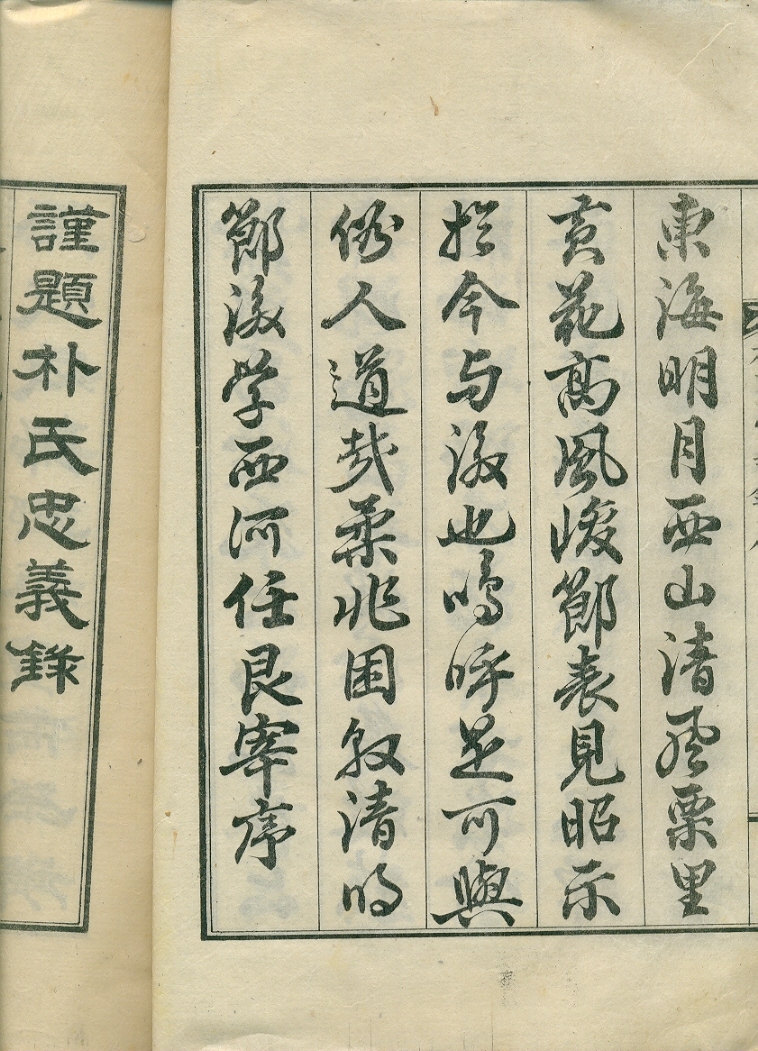 東海明月西山清風栗里
黃花高風峻節表見昭示
扵今与後也嗚呼是可與
俗人道哉柔兆困敦清明
節後学西河任良宰序
謹題朴氏忠義錄